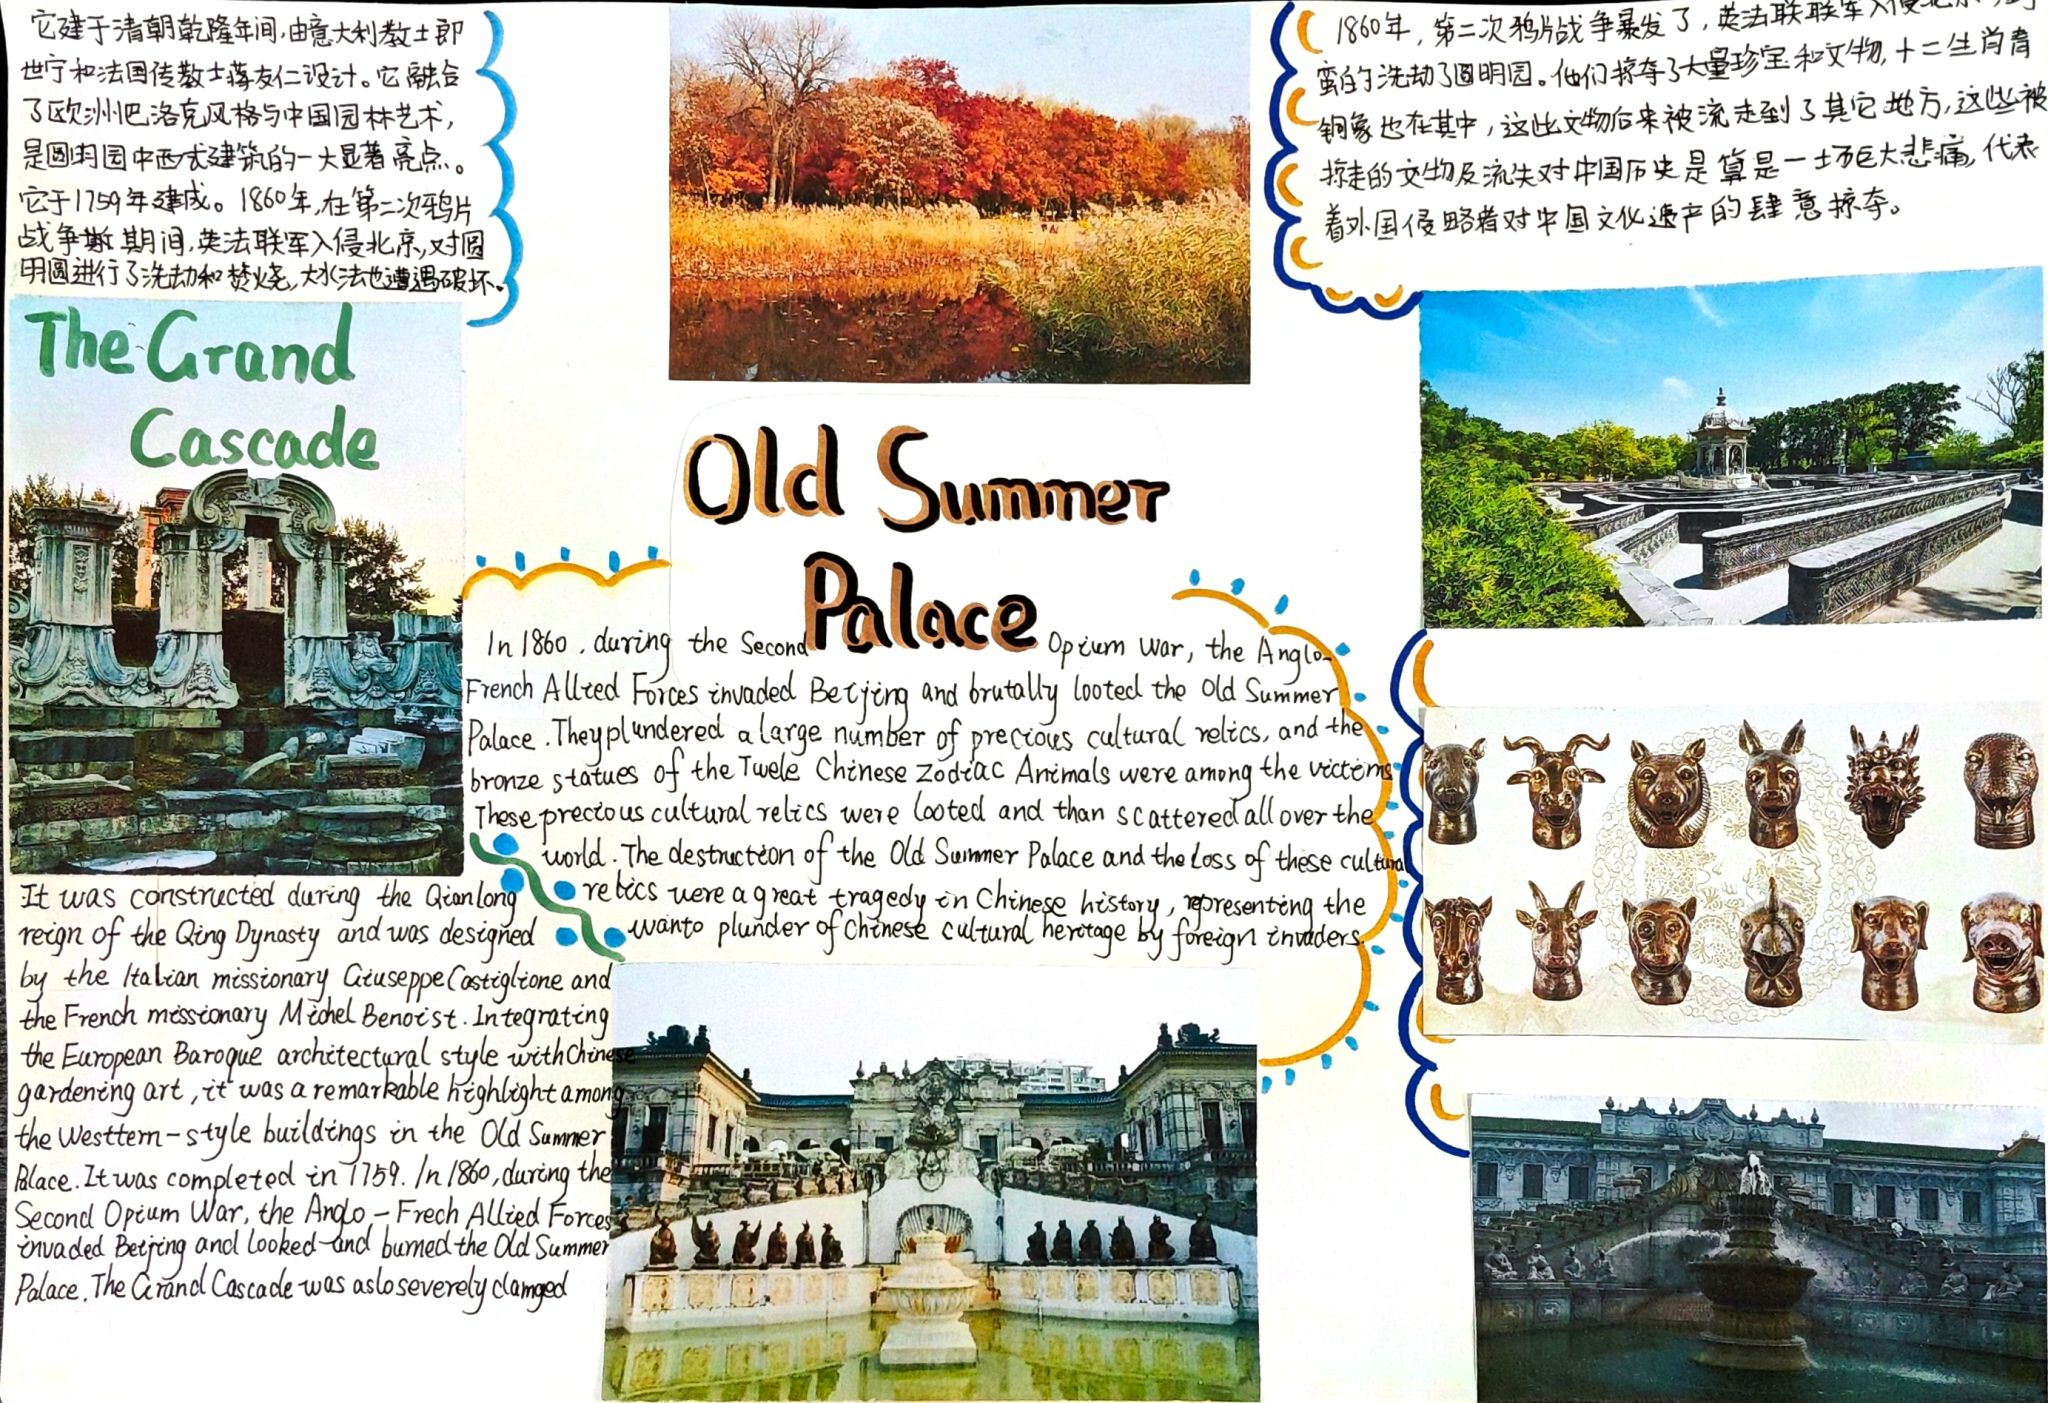 它建于清朝乾隆年间,由意大利教士郎
世宁和法国传教士蒋友仁设计。它融合
了欧洲巴洛克风格与中国园林艺术,
是圆明园中西式建筑的一大显著亮点。
它于1759年建成。1860年,在第二次鸦片
战争 期间,英法联军入侵北京,对圆
明圆进行了洗劫和焚烧,大水法也遭遇破坏。
The Grand
Cascade
It was constructed during the Qianlong
reign of the Qing Dynasty and was designed
by the Italian missionary Giuseppe Castiglione and
the French missionary Michel Benoist. Integrating
the European Baroque architectural style with Chinese
gardening art, it was a remarkable highlight among
the Westtern-style buildings in the Old Summer
Palace. It was completed in 1759. In 1860, during the
Second Opium War, the Anglo-Frech Allied Forces
invaded Beijing and looked and burned the Old Summer
Palace. The Grand Cascade was aslo severely damged
Old Summer
Palace
In 1860, during the Second Opium War, the Anglo-
French Allied Forces invaded Beijing and brutally looted the Old Summer
Palace. They plundered a large number of precious cultural relics, and the
bronze statues of the Twele Chinese Zodiac Animals were among the victims
These precious cultural relics were looted and than scattered all over the
world. The destruction of the Old Summer Palace and the Loss of these cultural
relics were a great tragedy in Chinese history, representing the
wanto plunder of Chinese cultural heritage by foreign invaders.
1860年,第二次鸦片战争暴发了,英法联联军入侵北京,
蛮的洗劫了圆明园。他们掠夺了大量珍宝和文物,十二生肖青
铜象也在其中,这些文物后来被流走到了其它地方,这些被
掠走的文物及流失对中国历史是算是一场巨大悲痛,代表
着外国侵略者对中国文化遗产的肆意掠夺。